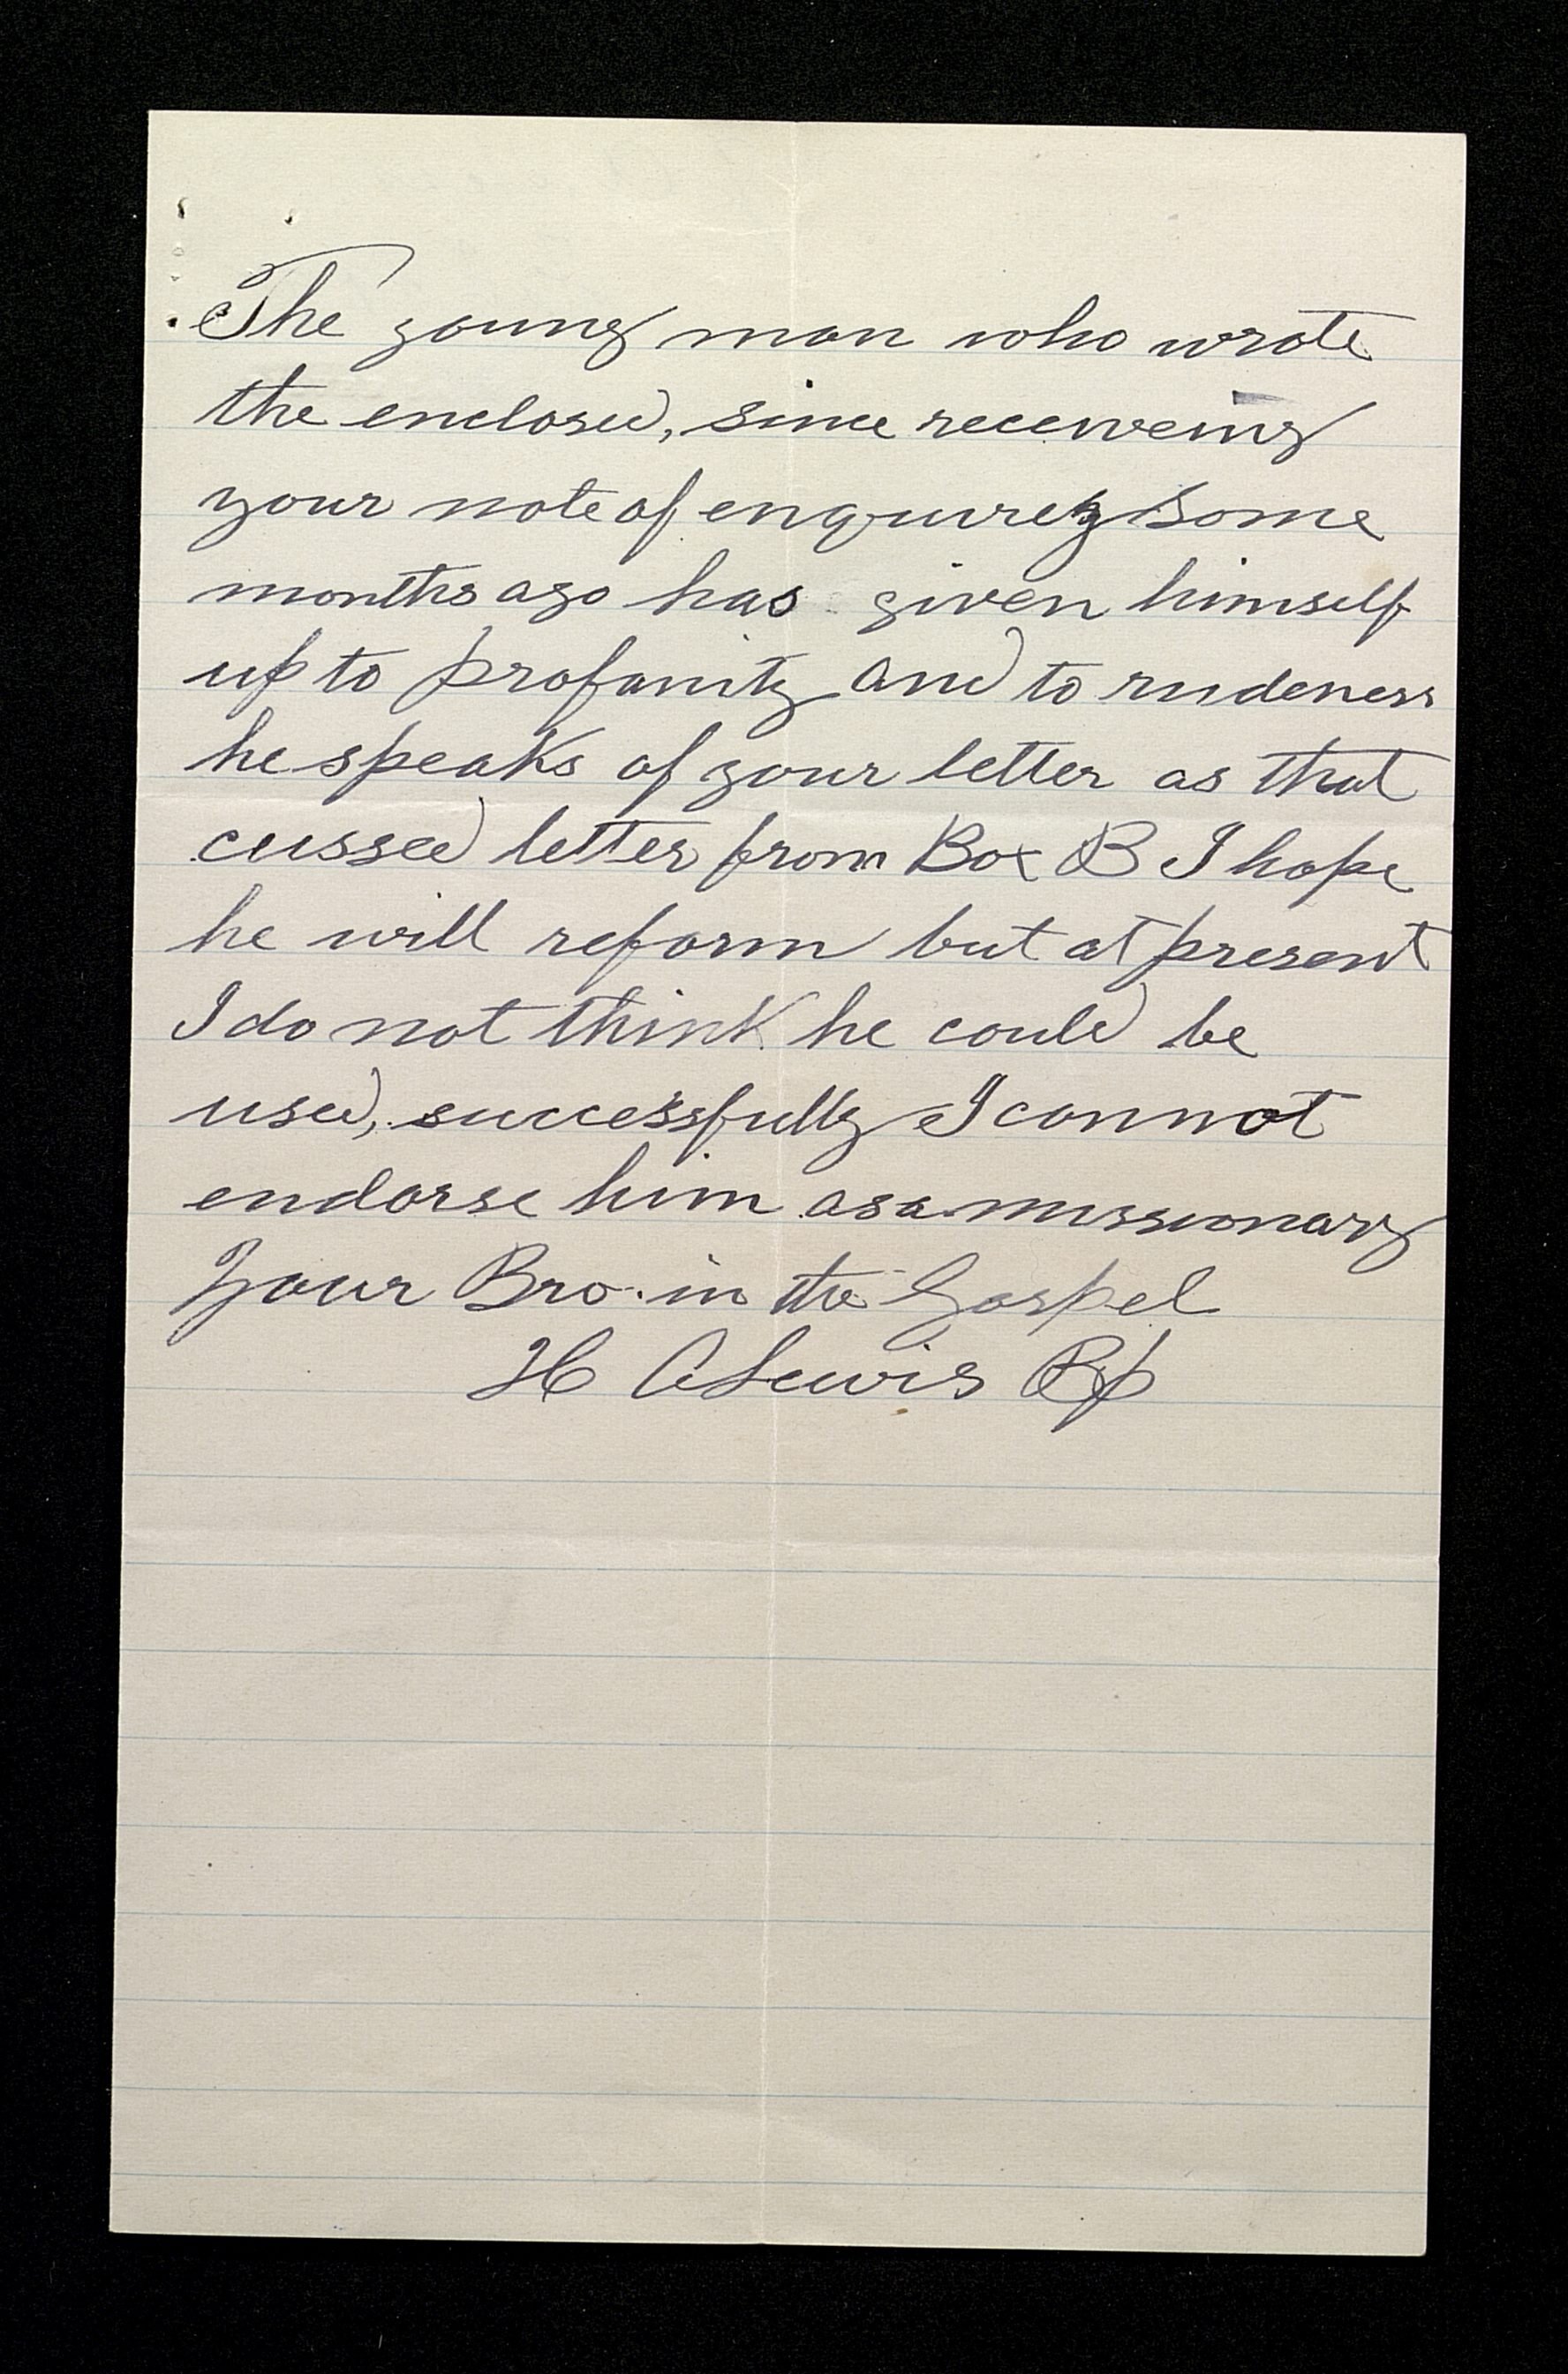 The young man who wrote
the enclosed, since receiveing
your note of enquirey some
months ago has given himself
up to profanity and to rudeness
he speaks of your letter as that
cussed letter from Box B I hope
he will reform but at present
I do not think he could be
used, successfully I cannot
endorse him as a missionary
Your Bro. in the Gospel
H C Lewis Bp